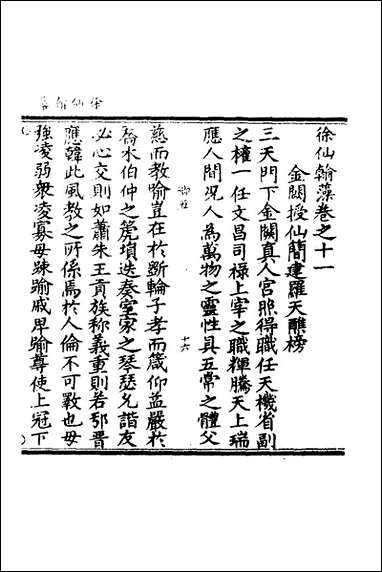 徐仙翰藻卷之十一
金闕授仙簡建羅天醮榜
三天門下金闕真人宮照得職任天機省副
之權一任文昌司祿上宰之職輝騰天上瑞
應人間況人為萬物之靈性具五常之體父
慈而教喻豈在於斷輪子孝而箴仰益嚴於
喬木伯仲之箎塤迭奏室家之琴瑟允諧友
必心交則如蕭朱王貢族称義重則若邧晋
應韓此風教之所係焉於人倫不可斁也毋
強凌弱衆凌寡毋踈踰戚卑踰尊使上冠下
十六